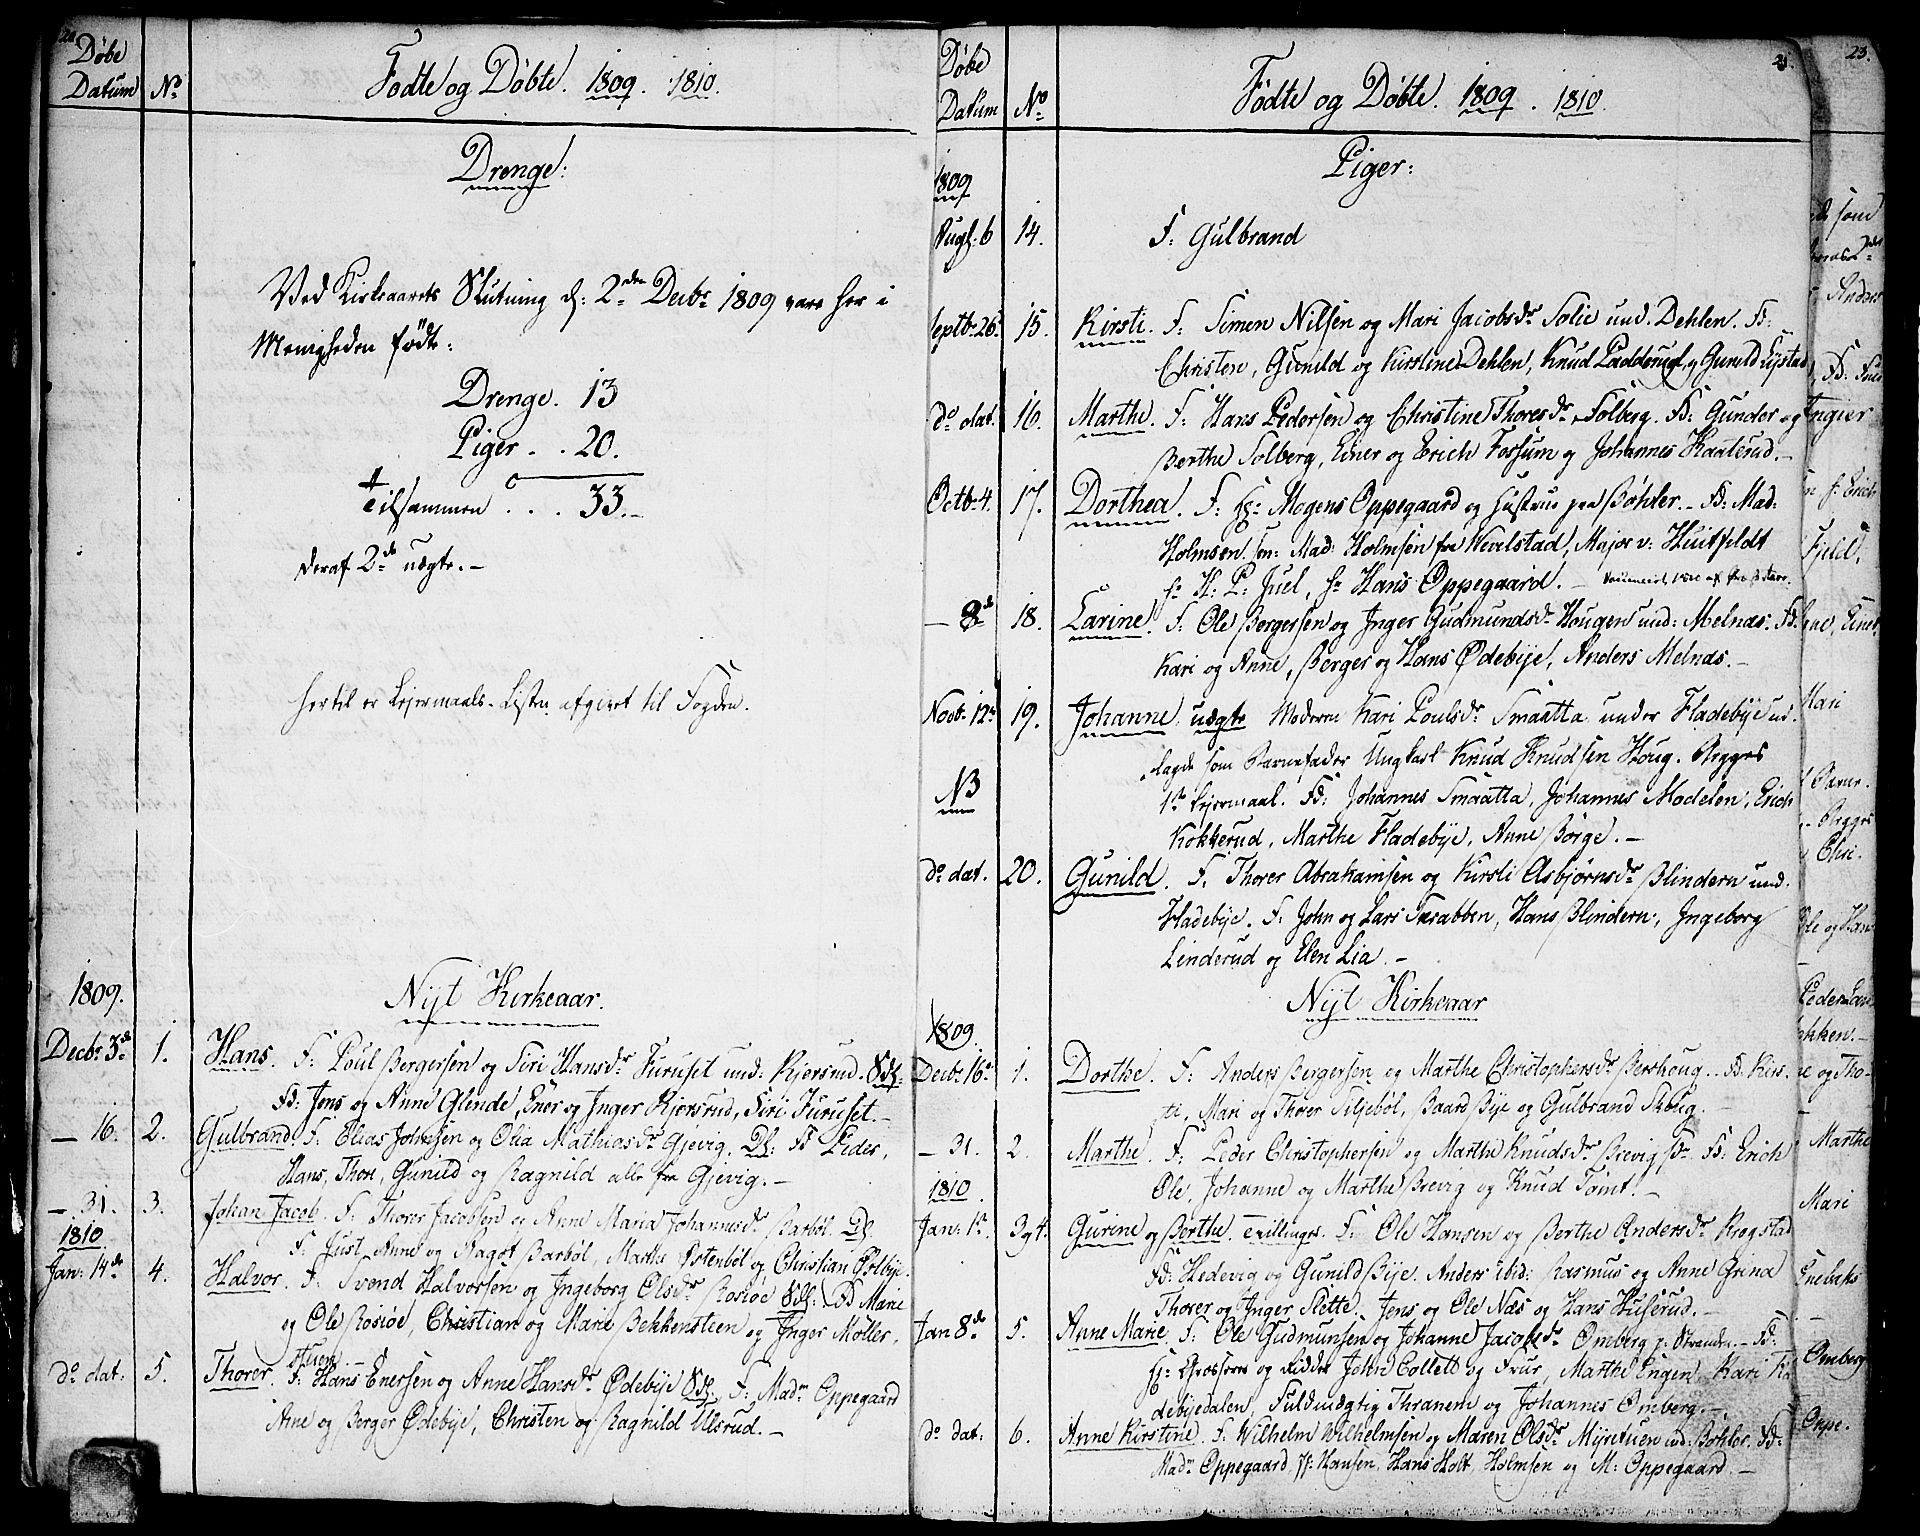 20.
Døbe
Datum
No
Fødte og Døbte. 1809. 1810.
Drenge:
Ved Kirkeaarets Slutning d: 2den Decbr 1809 vare her i
Menigheden fødte:
Drenge. 13
Piger . . 20.
Tilsammen . . . 33.
deraf 2de uægte.
Hertil er Lejermaals-Listen afgivet til Fogden.
1809.
Nyt Kirkeaar.
Decbr 3de 1. Hans. F: Poul Bergersen og Siri Hansdr Furuset und: Kjersrud.
Fd: Jens og Anne Glende, Ener og Inger Kjersrud, Siri Furuset.
16. 2. Gulbrand. F: Elias Johnsen og Olia Mathiasdr Gjevig. Fd Peder,
Hans, Thore, Gunild og Ragnild alle fra Gjevig.
31. 3. Johan Jacob. F: Thorer Jacobsen og Anne Maria Johannesdr Barbøl.
F: Just, Anne og Barbøl, Marthe Østenbøl og Christian Østbye.
1810
Jan: 14de 4. Halvor. F: Svend Halvorsen og Ingeborg Olsdr Rosiøe Fd Marie
og Ole Rosiøe, Christian og Marie Bekkensteen og Inger Møller,
do dat: 5. Thorer. F: Hans Enersen og Anne Hansdr Ødebye F: Madm Oppegaard
Ane og Berger Ødebye, Christen og Ragnild Ulsrud.
Døbe
Datum
No
Fødte og Døbte. 1809. 1810.
21.
Piger:
1809
Augs: 6 14. F: Gulbrand
Septbr 26 15. Kirsti. F: Simen Nilsen og Mari Jacobsdr Solie und. Dehlen. Fd:
Christen, Gunild og Kirstine Dehlen, Knud Padderud, og Gunild
do dat. 16. Marthe. F: Hans Pedersen og Christine Thoresdr Solberg. Fd: Gunder og
Berthe Solberg, Einer og Erich Fossum og Johannes Kaaterud.
Octb. 4. 17. Dorthea. F: Hr Mogens Oppegaard og Hustrue paa Bøhler. Fd: Mad:
Holmsen sen: Mad: Holmsen fra Nevelstad, Major v: Huitfeldt
hr H: P: Juel, hr Hans Oppegaard.
8de 18. Larine. F: Ole Bergersen og Inger Gudmundsdr Hougen und: Melnas. Fd:
Kari og Anne, Berger og Hans Ødebye, Anders Melnas.
Novb. 12te 19. Johanne uægte Moderen Kari Poulsdr Smaatta under Fladebye ud-
lagde som Barnefader Ungkarl Knud Knudsen Houg. Begges
NB
1te Lejermaal. Fd: Johannes Smaatta, Johannes Modelen, Erich
Kokkerud, Marthe Fladebye, Anne Børge.
do dat. 20. Gunild. F. Thorer Abrahamsen og Kirsti Asbjørnsdr Blindern und.
Fladebye. F: John og Lars Skrabben, Hans Blindern, Ingeborg
Linderud og Elen Lia.
Nyt Kirkeaar
1809.
Decbr 16de 1. Dorthe. F: Anders Bergersen og Marthe Christophersdr Bershoug. Fd: Kirs-
ti, Mari og Thorer Siljebøl, Baard Bye og Gulbrand Skoug.
31. 2. Marthe. F: Peder Christophersen og Marthe Knudsdr Brevig Fd: Erich
Ole, Johanne og Marthe Brevig og Knud Tomt.
1810
Jan: 1te 3 og 4. Gurine og Berthe. Tvillinger. F: Ole Hansen og Berthe Andersdr Krogstad
Fd: Hedevig og Gunild Bye. Anders ibid: Rasmus og Anne Grina
Thorer og Inger Slette. Jens og Ole Næs og Hans Huserud.
Jan 8de 5. Anne Marie F: Ole Gudmunsen og Johanne Jacobsdr Omberg p: Stranden. Fd:
Hr: Grosserer og Ridder John Collett og Frue, Marthe Engen, Kari
debyedalen, Fuldmægtig Thranem og Johannes Omberg.
do dat: 6. Anne Kirstine. F: Wilhelm Wilhelmsen og Maren Olsdr Myrstuen und: Bøhler. Fd:
Madm Oppegaard, Jf: Hansen, Hans Holt, Holmsen og M: Oppegaard.
23.
som
Mari
Begges
Chri.
Ole og Hans
Marthe
Mari
Enebaks
Omberg
Oppe.